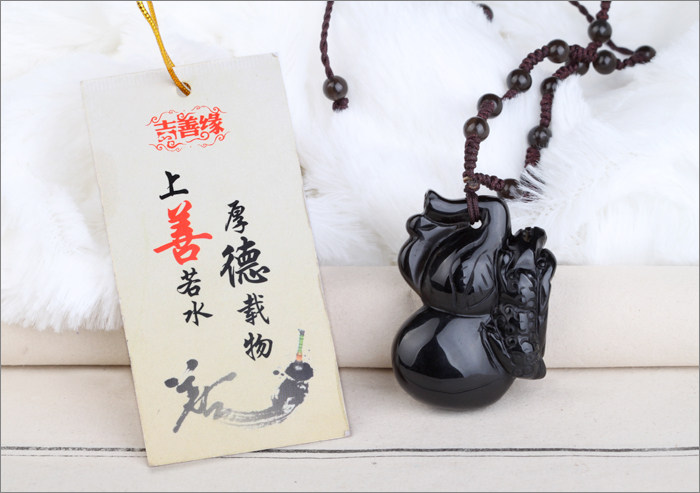 吉善缘
上善若水
厚德载物